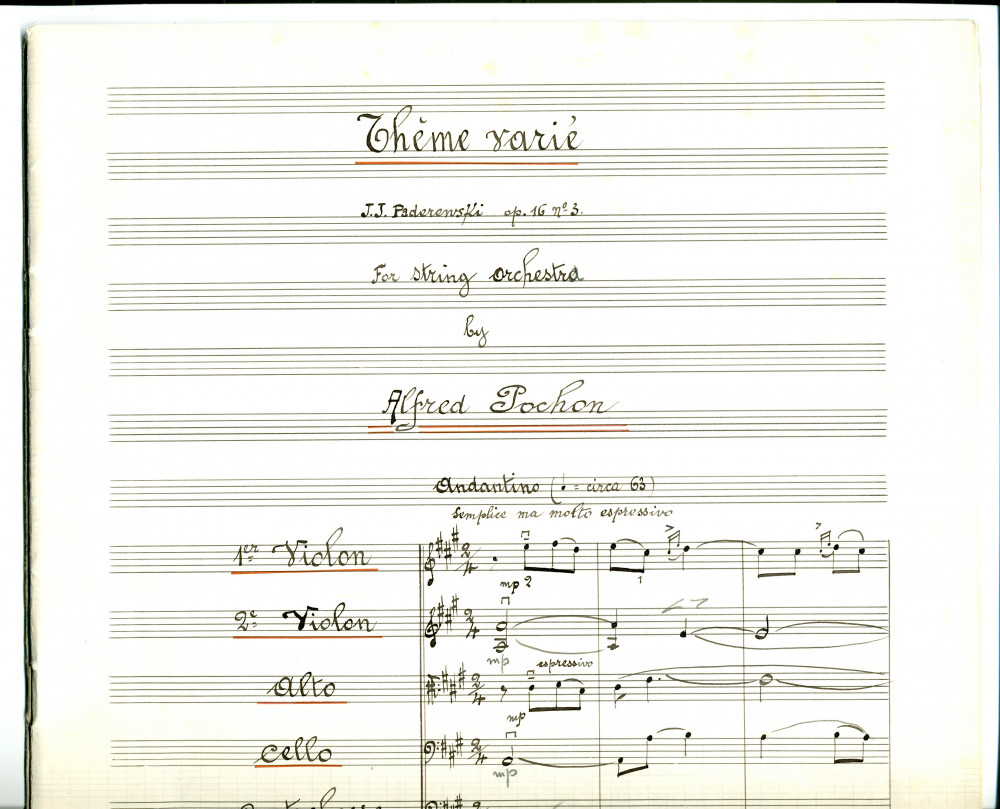 Thème varié
J.J. Paderewski op. 16 nº 3.
For string orchestra
by
Alfred Pochon
Andantino (♩ = circa 63)
Semplice ma molto espressivo
1er Violon
mp 2
1
2e Violon
mp
espressivo
Alto
mp
Cello
mp